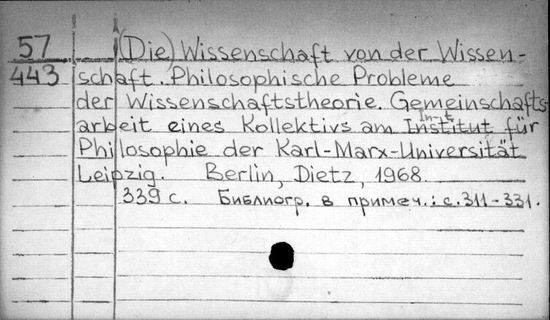 57 (Die) Wissenschaft von der Wissen-
443 schaft. Philosophische Probleme
der Wissenschaftstheorie. Gemeinschafts-
arbeit eines Kollektivs am Institut für
In-t
Philosophie der Karl-Marx-Universität
Leipzig. Berlin, Dietz, 1968.
339 с. Библиогр. в примеч.: с. 311-331.